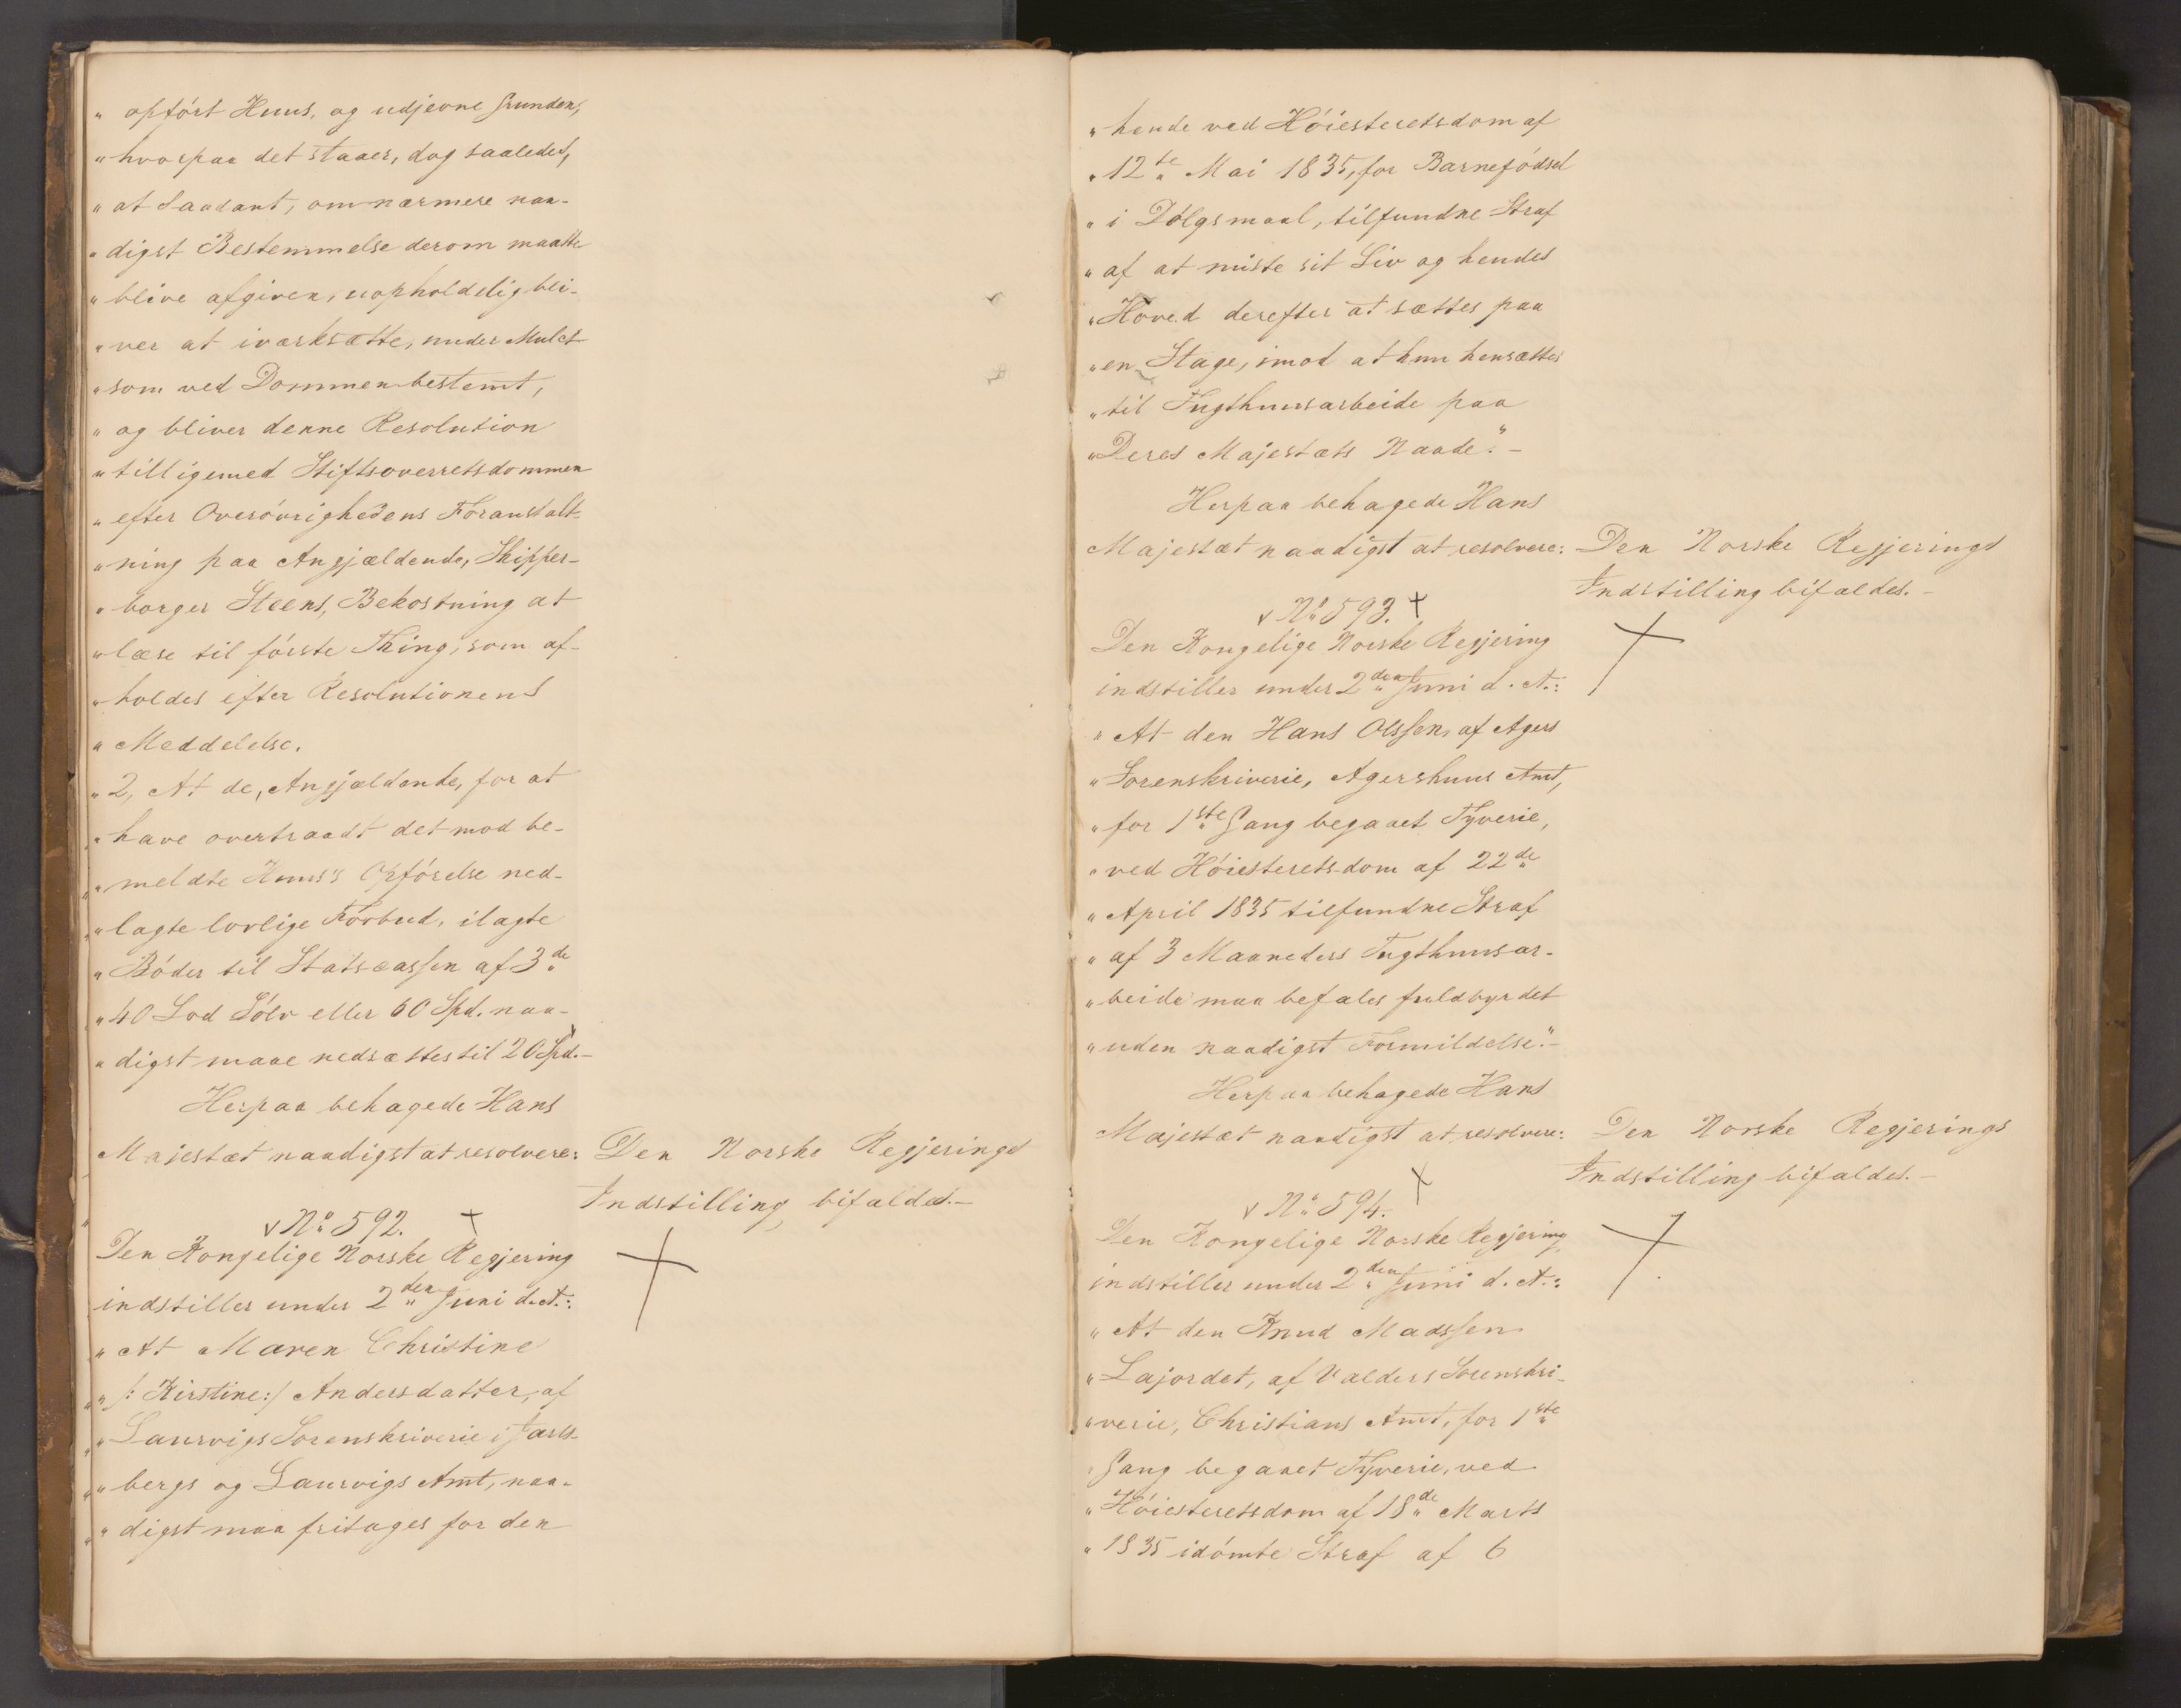 " opført Huus, og udjevne Grunden,
" hvorpaa det staaer, dog saaledes,
" at Saadant, om nærmere naa-
" digst Bestemmelse derom maatte
" blive afgiven, uopholdelig bli-
" ver at iværksætte, under Mulct
" som ved Dommen bestemt,
" og bliver denne Resolution
" tilligemed Stiftsoverretsdommen
" efter Overøvrighedens Foranstalt-
" ning paa Angjældende, Skipper-
" borger Steens, Bekostning at
" læse til første Thing, som af-
" holdes efter Resolutionens
" Meddelelse.
" 2, At de, Angjældende, for at
" have overtraadt det mod be-
" meldte Huus's Opførelse ned-
" lagte lovlige Forbud, ilagte
" Bøder til Statscassen af 3de
" 40 Lod Sølv eller 60 Spd. naa-
" digst maae nedsættes til 20 Spd.-
Herpaa behagede Hans
Majestæt naadigst at resolvere:
Den Norske Regjerings
Indstilling bifaldes.-
No 592.
Den Kongelige Norske Regjering
indstiller under 2den Juni d.A.:
" At Maren Christine
" /: Kirstine:/ Andersdatter, af
" Laurvigs Sorenskriverie i Jarls-
" bergs og Laurvigs Amt, naa-
" digst maa fritages for den
" hende ved Høiesteretsdom af
" 12te Mai 1835, for Barnefødsel
" i Dølgsmaal, tilfundne Straf
" af at miste sit Liv og hendes
" Hoved derefter at sættes paa
" en Stage, imod at hun hensættes
" til Tugthuusarbeide paa
" Deres Majestæts Naade."-
Herpaa behagede Hans
Majestæt naadigst at resolvere:
Den Norske Regjerings
Indstilling bifaldes.-
No 593.
Den Kongelige Norske Regjering
indstiller under 2den Juni d. A.:
" At den Hans Olssen, af Agers
" Sorenskriverie, Agershuus Amt,
" for 1ste Gang begaaet Tyverie,
" ved Høiesteretsdom af 22de
" April 1835 tilfundne Straf
" af 3 Maaneders Tugthuusar-
" beide maa befales fuldbyrdet
" uden naadigst Formildelse."-
Herpaa behagede Hans
Majestæt naadigst at resolvere:
Den Norske Regjerings
Indstilling bifaldes.-
No 594.
Den Kongelige Norske Regjering
indstiller under 2den Juni d. A.:
" At den Knud Madssen
" Lajordet, af Valders Sorenskri-
" verie, Christians Amt, for 1ste
" Gang begaaet Tyverie, ved
" Høiesteretsdom af 18de Marts
" 1835 idømte Straf af 6